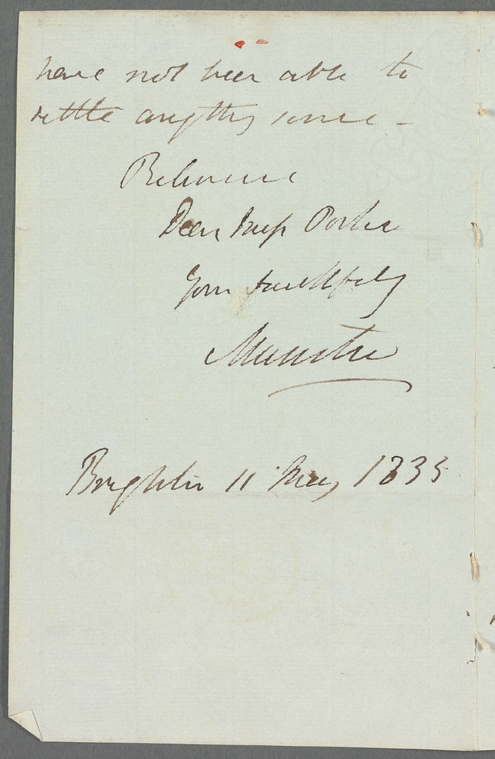 have not been able to
settle anything since -
Believe me
Dear Miss Porter
Yours faithfully
Munster
Brighton 11 May 1835